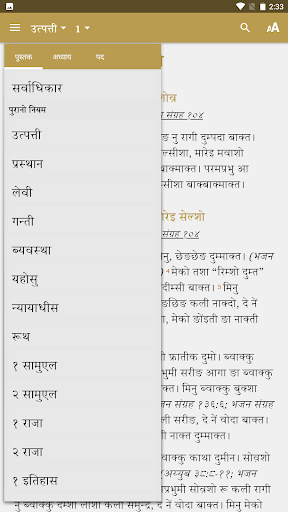 2:33
उत्पत्ती 1
AA
पुस्तक अध्याय पद
सर्वाधिकार
पुरानो नियम
उत्पत्ती
प्रस्थान
लेवी
गन्ती
ब्यवस्था
यहोसु
न्यायाधीस
रूथ
१ सामुएल
२ सामुएल
१ राजा
२ राजा
१ इतिहास
संग्रह १०४
ङ नु रागी दुम्पदा बाक्त।
ल्सीशा, मारेइ मवाशो
बाक्माक्त। परमप्रभु आ
ल्सीशा बाक्बाक्माक्त।
रेइ सेल्शो
संग्रह १०४
नु, छेङछेङ दुम्माक्त। (भजन
४ मेको तशा “रिम्शो दुम्त”
दीम्सी बाक्त। ५ मिनु
छिङ कली नाक्दो, दे नें
मेको ङोंइती ङा नाक्ती
ती फ्रातीक दुमो। ब्वाक्कु
भुमी सरीङ आगा ङा ब्वाक्कु
क्त। मिनु ब्वाक्कु बुक्शा
संग्रह १३६:६; भजन संग्रह
रीङ, दे नें वोदा बाक्त।
नाक्त दुम्माक्त।
ब्वाक्कु काथा दुमीन। सोव़शो
(अय्युब ३८:८-११; भजन
प्रभुमी सोव़शो रू कली रागी
नु ब्वाक्कु दम्शो लाशो कली समुन्द्र, दे नें वोदा बाक्त। मिनु मेको